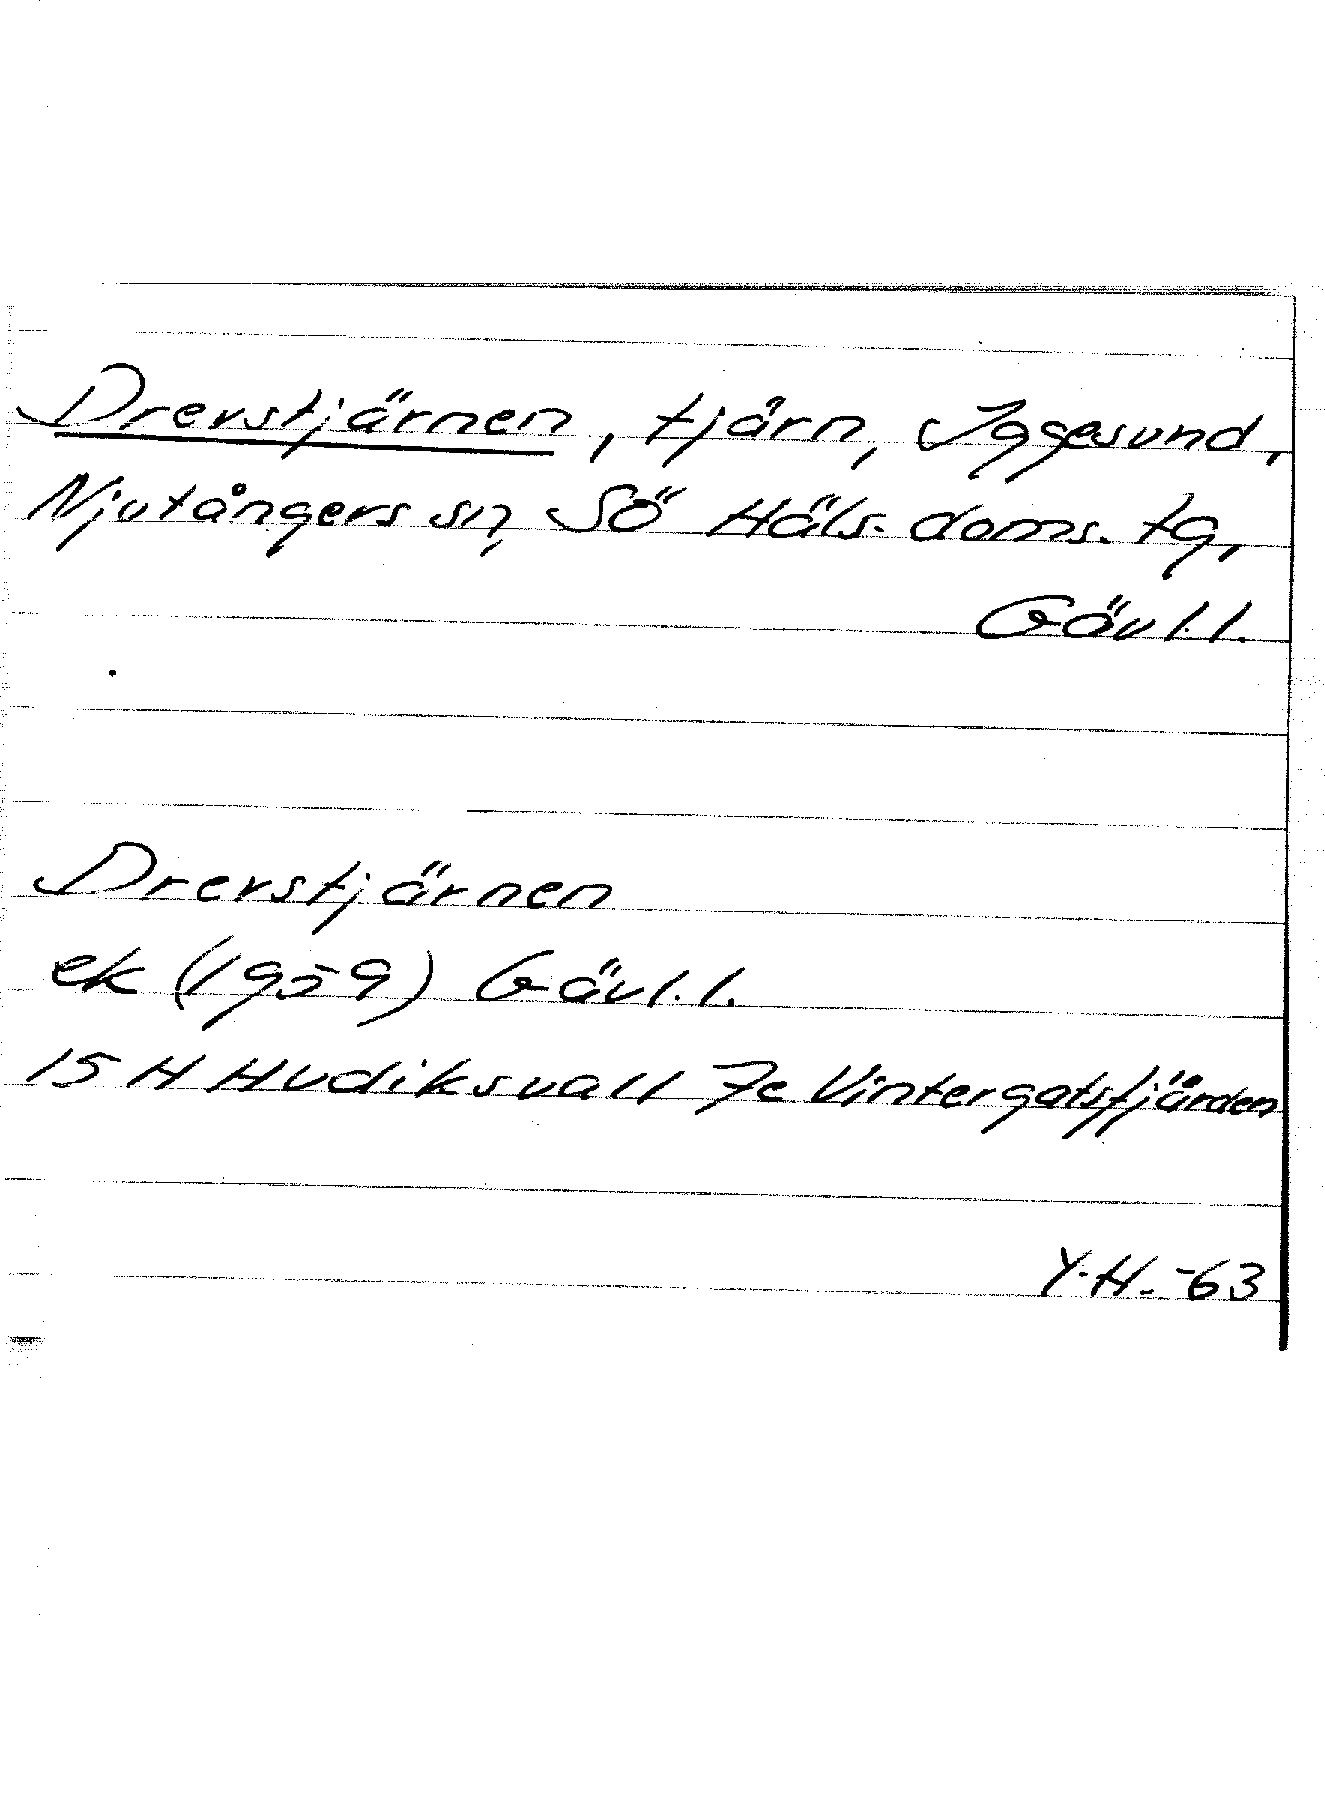 Drevstjärnen, tjärn, Iggesund,
Njutångers sn, Sö Häls. doms. tg,
Gävl. l.
Drevstjärnen
ek (1959) Gävl. l.
15 H Hudiksvall 7e Vintergatsfjärden
Y.H. -63